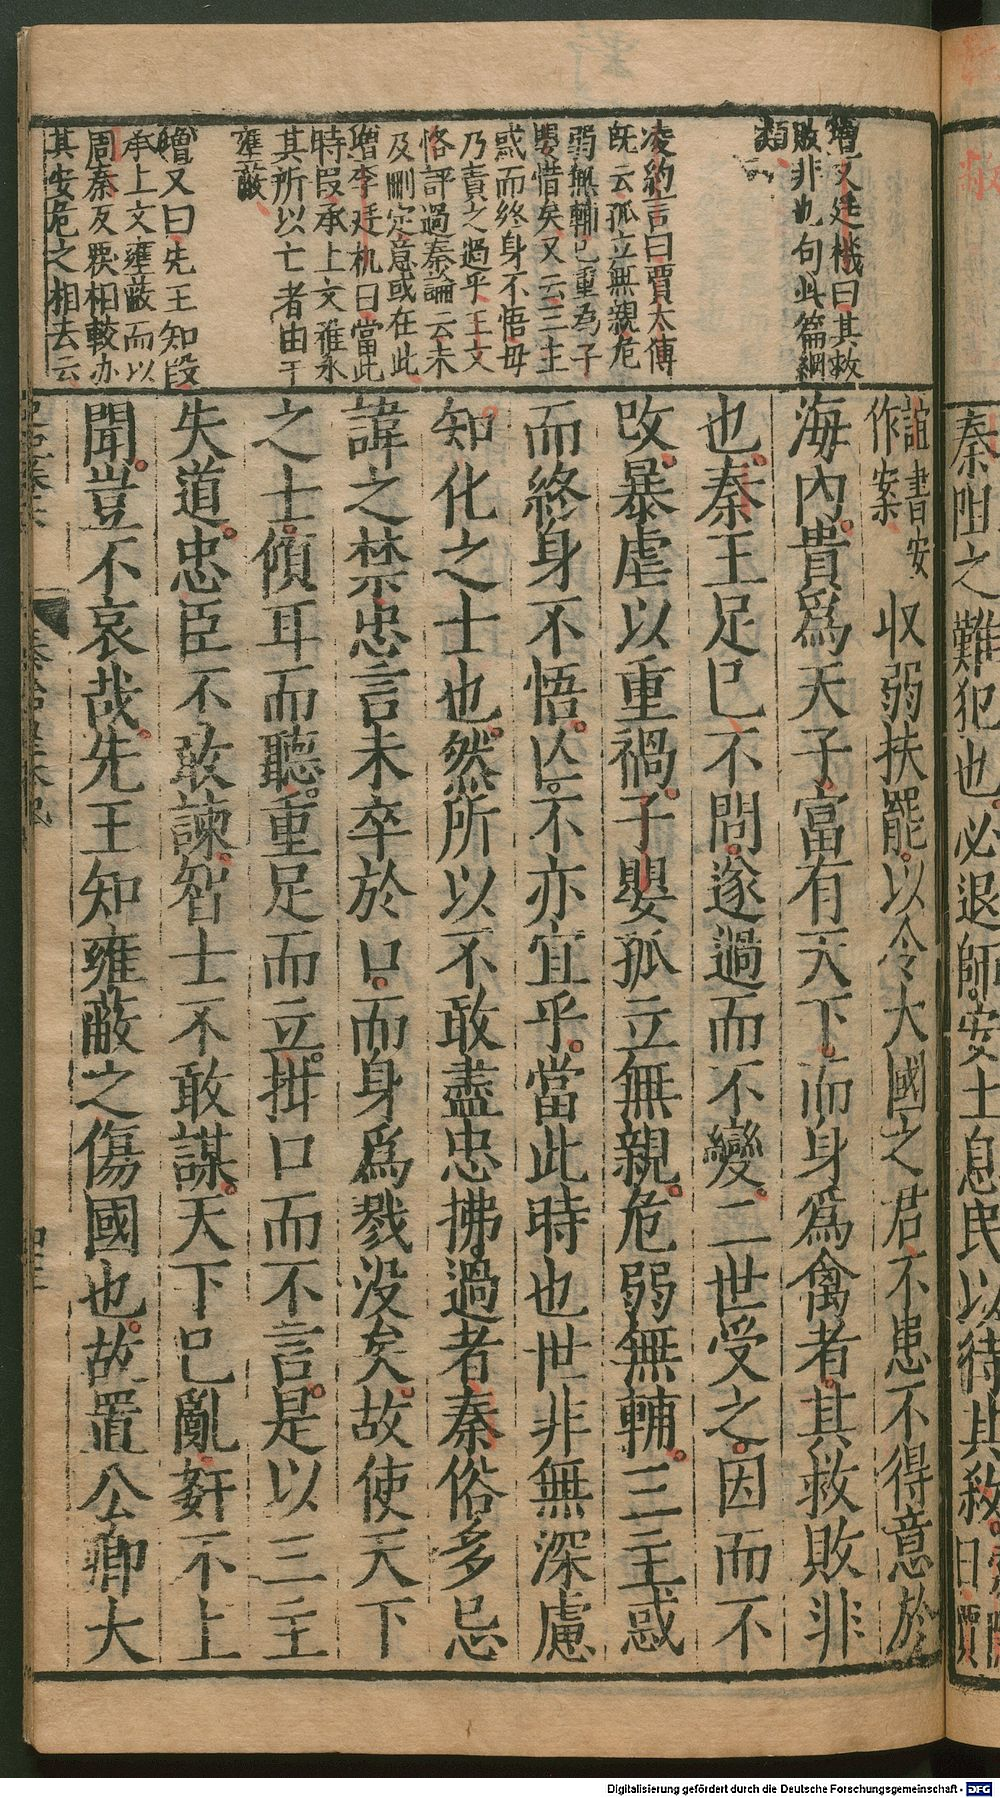 秦阻之難犯也必退師安土息民以待其敝
增又廷機曰其救
敗非也句此篇綱
類
凌約言曰賈太傅
既云孤立無親危
弱無輔已重為子
嬰惜矣又云三主
惑而終身不悟毋
乃責之過乎王文
恪評過秦論云未
及刪定意或在此
增李廷机曰當此
時段承上文雅永
其所以亡者由于
壅蔽
增又曰先王知段
承上文壅蔽而以
周秦反覆相較亦
其安危之相去云
誼書安
作案
收弱扶罷以令大國之君不患不得意於
海內貴爲天子富有天下而身爲禽者其救敗非
也秦王足已不問遂過而不變二世受之因而不
改暴虐以重禍子嬰孤立無親危弱無輔三主惑
而終身不悟亡不亦宜乎當此時也世非無深慮
知化之士也然所以不敢盡忠拂過者秦俗多忌
諱之禁忠言未卒於口而身爲戮没矣故使天下
之士傾耳而聽重足而立拑口而不言是以三主
失道忠臣不敢諫智士不敢謀天下已亂奸不上
聞豈不哀哉先王知雍蔽之傷國也故置公卿大
Digitalisierung gefördert durch die Deutsche Forschungsgemeinschaft - DFG